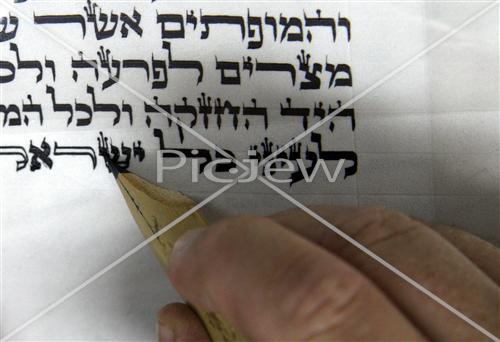 והמופתים אשר
מצרים לפרעה
היד החזקה ולכל
לעיני כל ישראל
Pic-jew